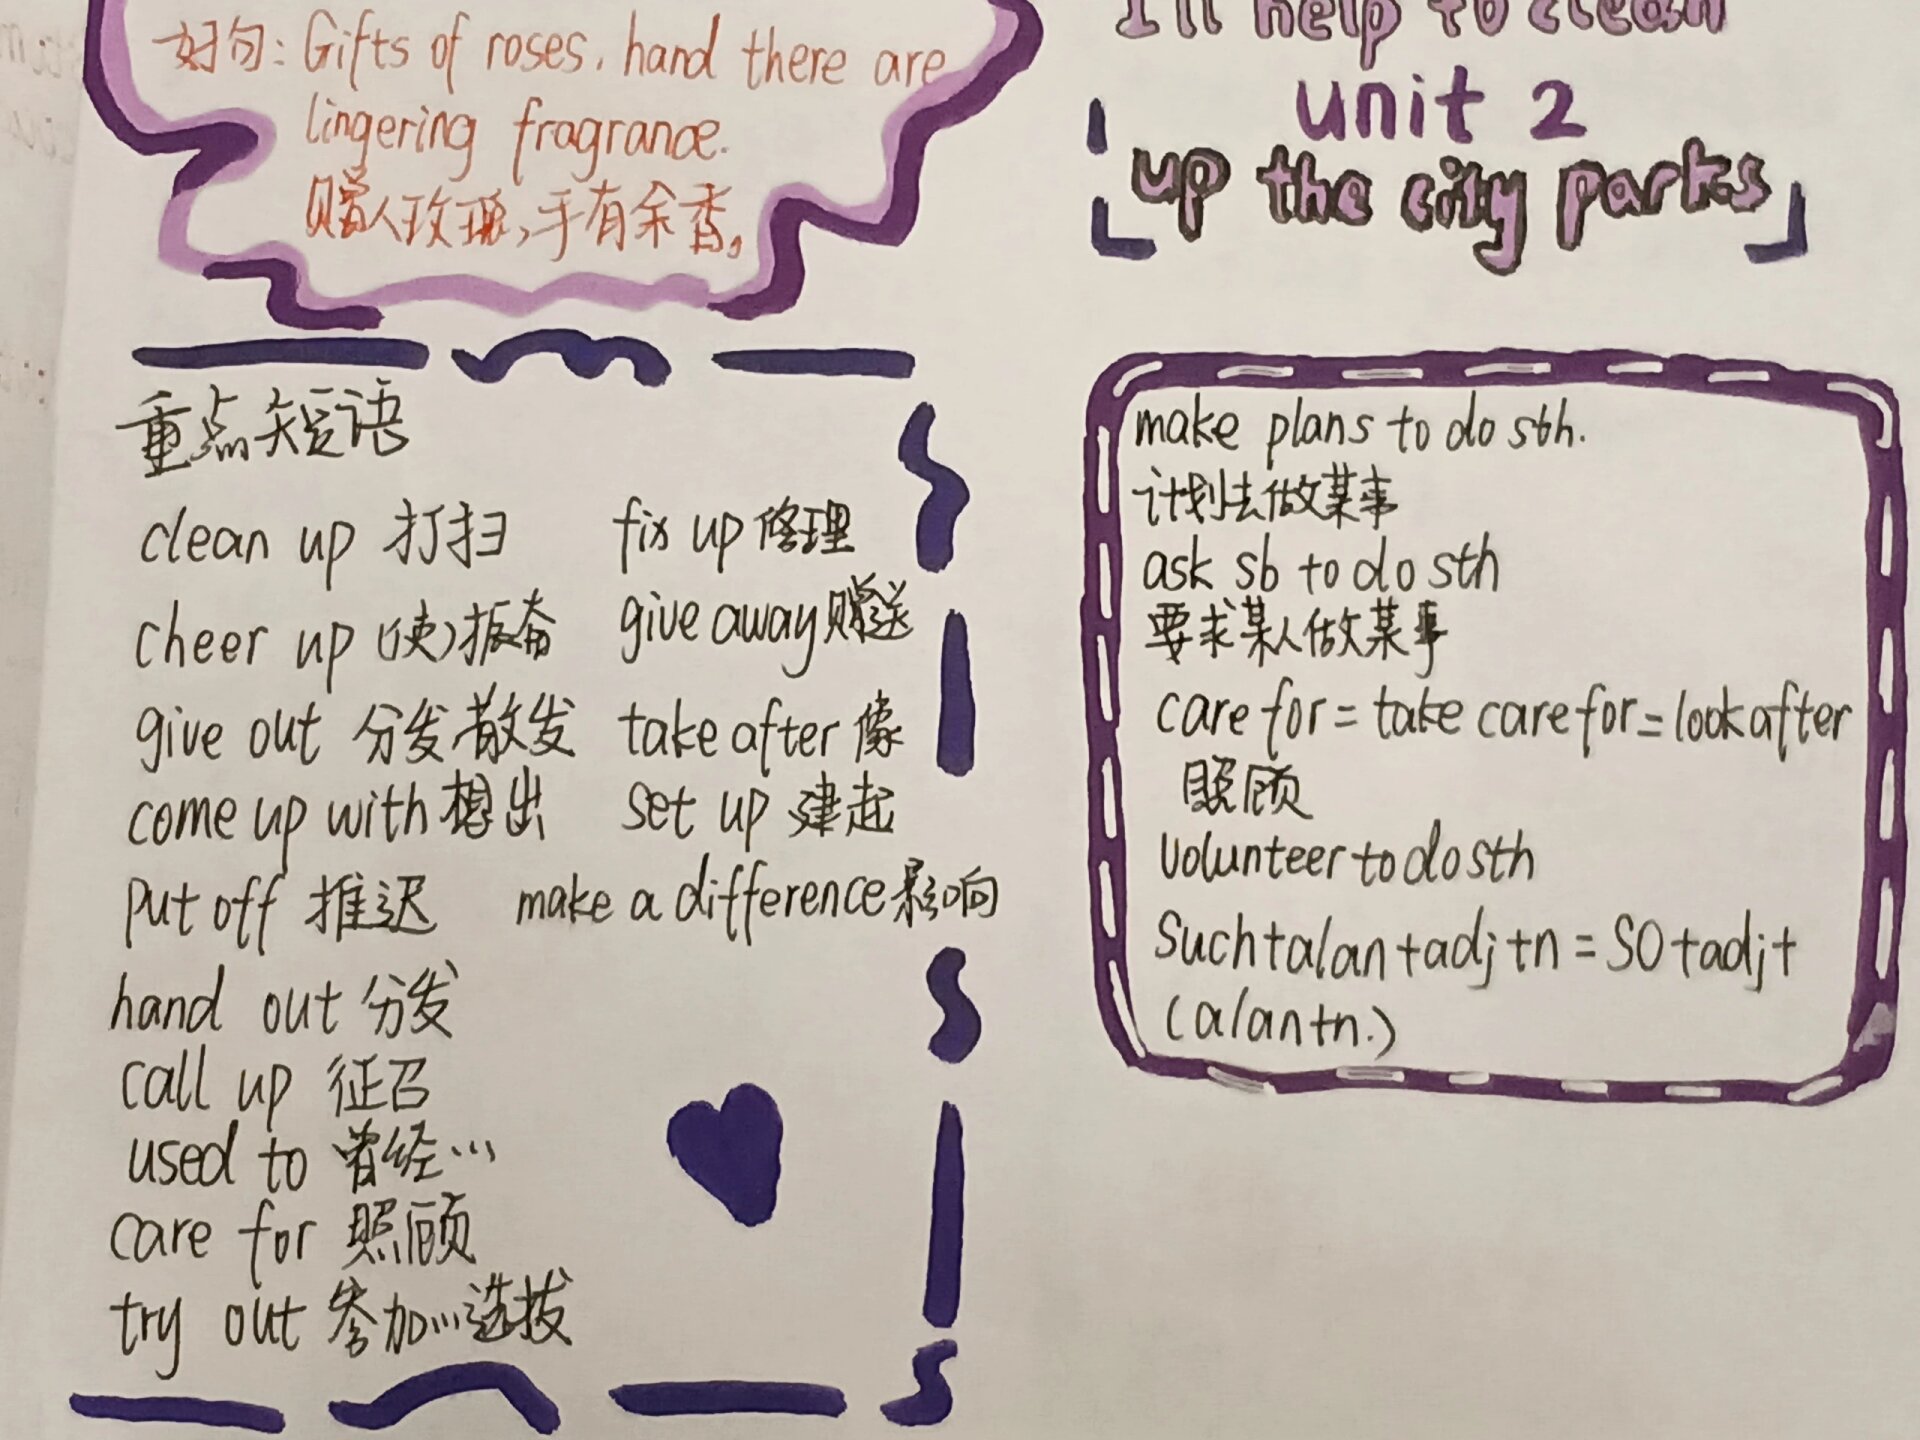 好句: Gifts of roses, hand there are
lingering fragrance.
赠人玫瑰,手有余香。
I'll help to clean
unit 2
up the city parks
重点短语
clean up 打扫 fix up 修理
cheer up (使)振奋 give away 赠送
give out 分发 散发 take after 像
come up with 想出 set up 建起
put off 推迟 make a difference 影响
hand out 分发
call up 征召
used to 曾经…
care for 照顾
try out 参加…选拔
make plans to do sth.
计划去做某事
ask sb to do sth
要求某人做某事
care for = take care for = look after
照顾
volunteer to do sth
Such+a/an+adj+n = SO+adj+
(a/an+n.)